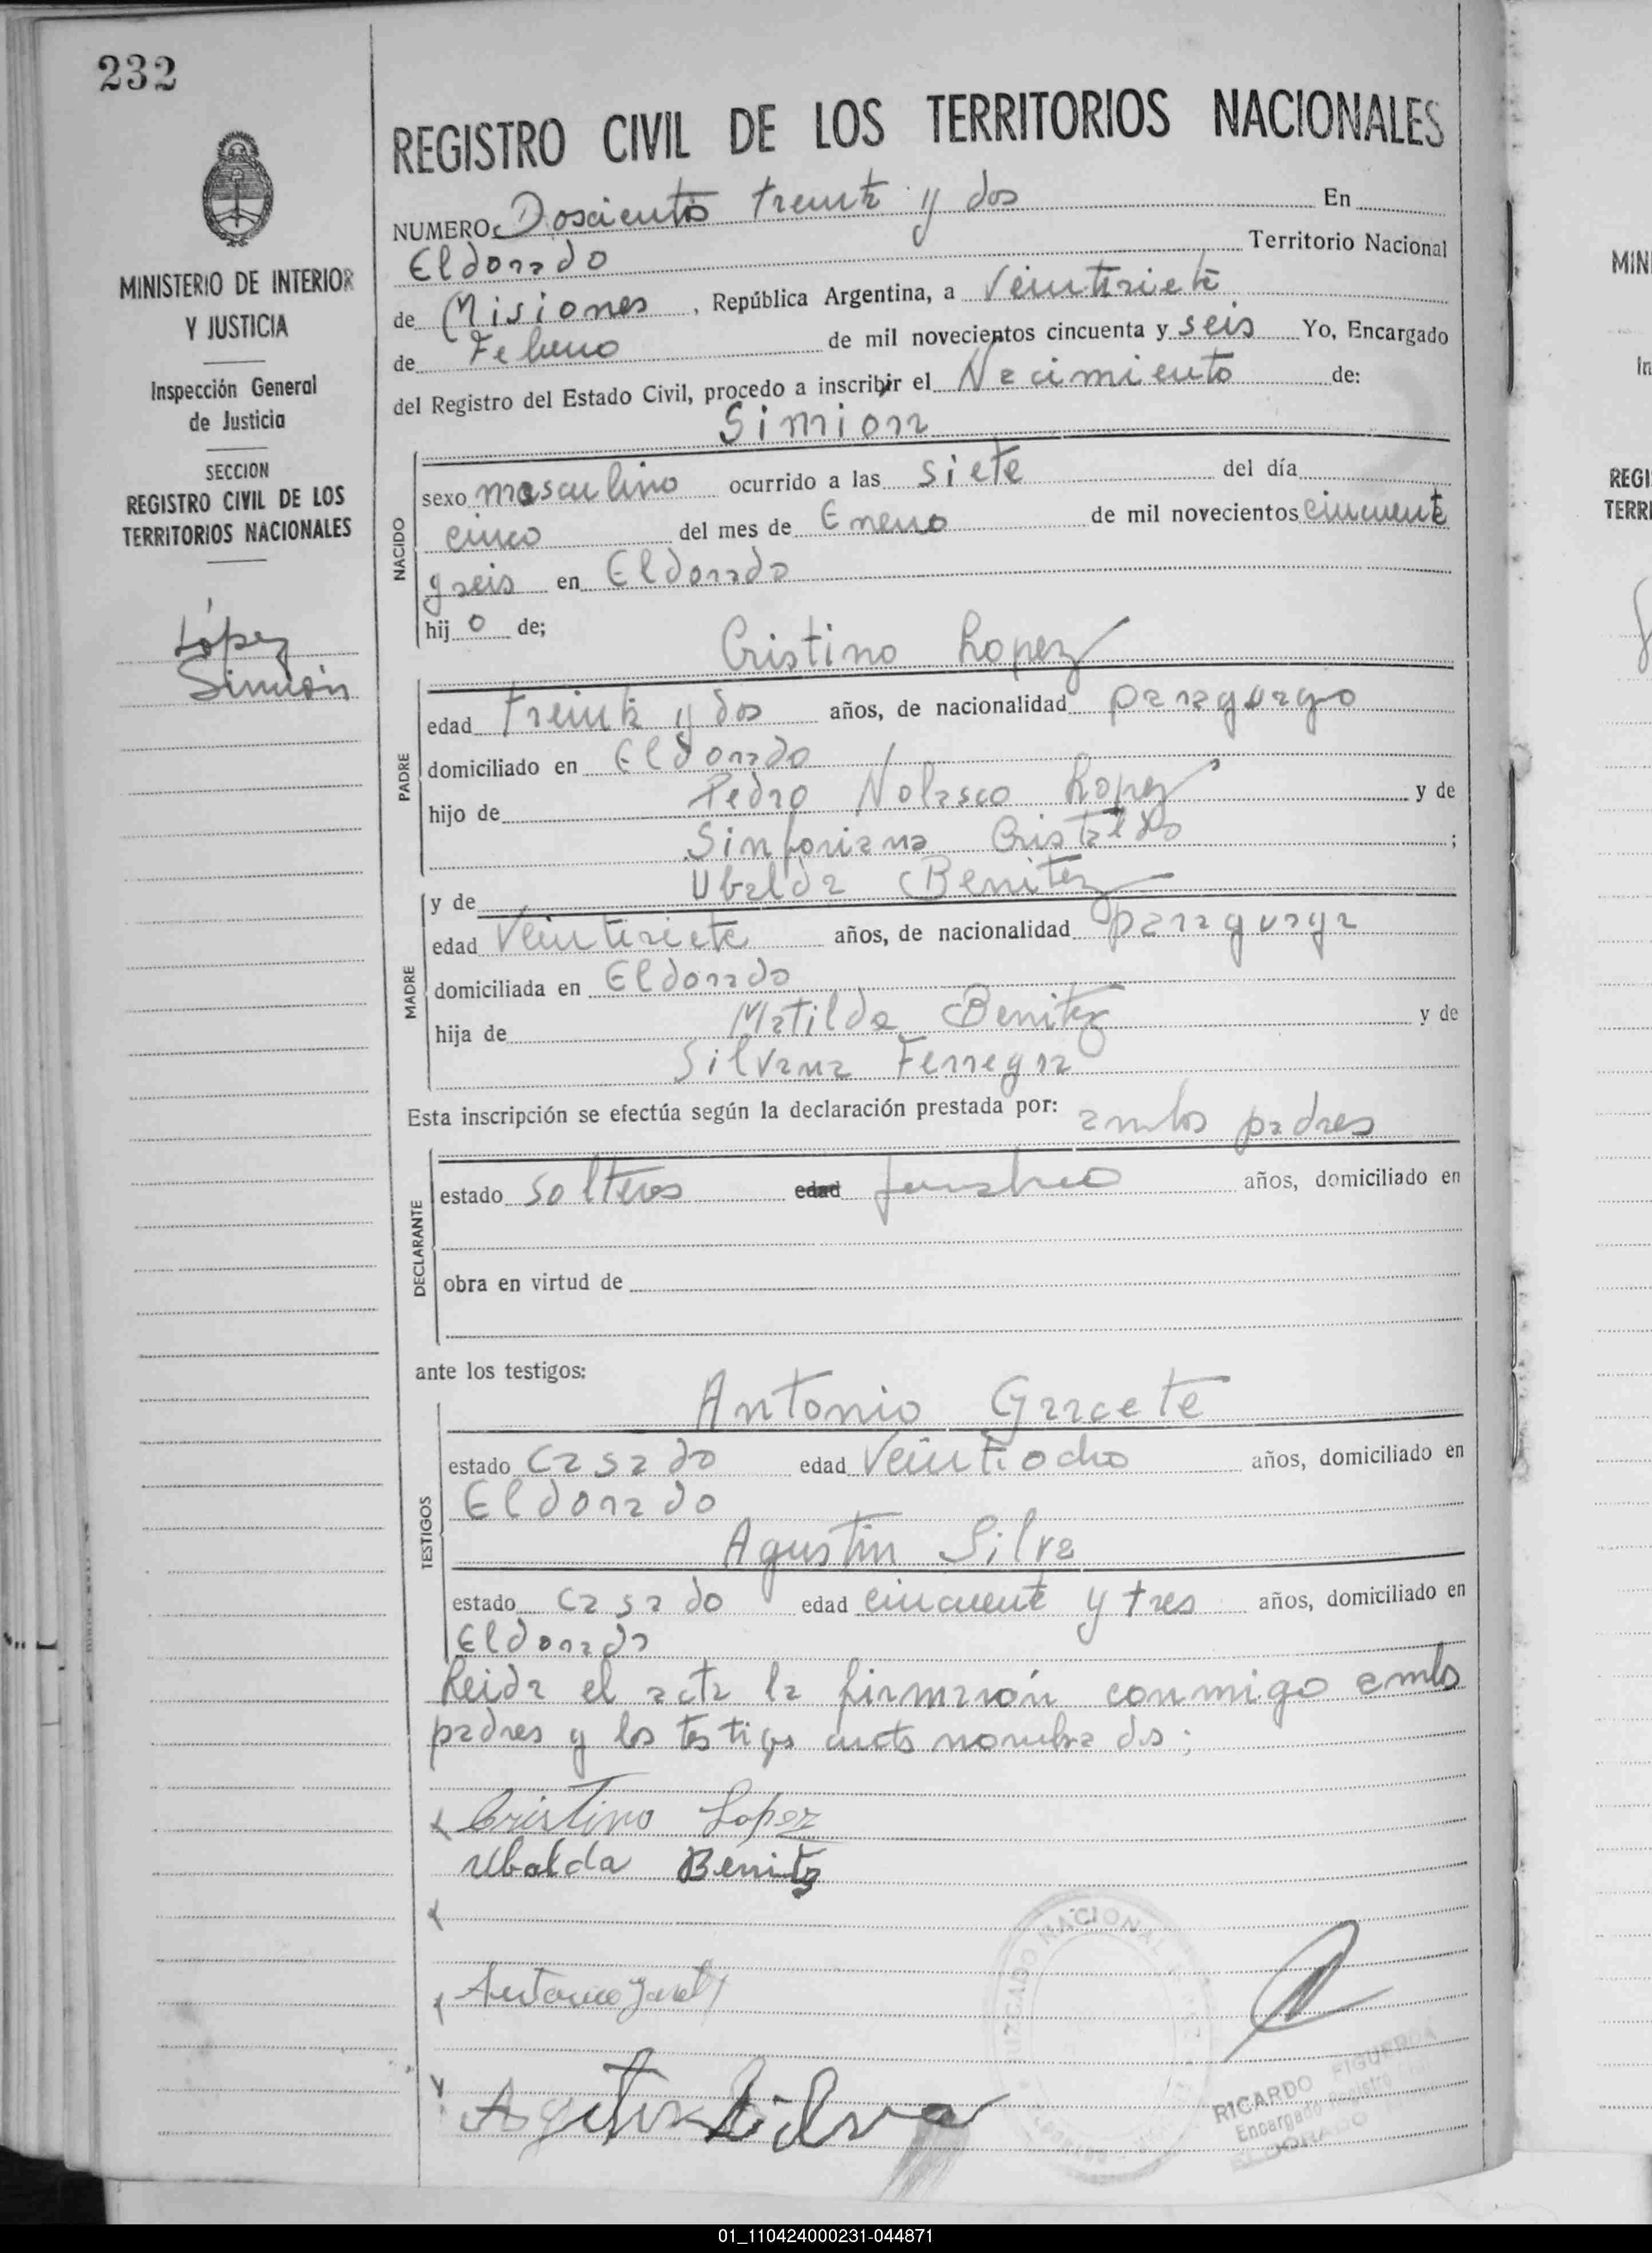 232
REGISTRO CIVIL DE LOS TERRITORIOS NACIONALES
MINISTERIO DE INTERIOR
Y JUSTICIA
Inspección General
de Justicia
SECCION
REGISTRO CIVIL DE LOS
TERRITORIOS NACIONALES
López
Simión
NUMERO Doscientos treinta y dos En
Eldorado Territorio Nacional
de Misiones, República Argentina, a Veintisiete
de Febrero de mil novecientos cincuenta y seis Yo, Encargado
del Registro del Estado Civil, procedo a inscribir el Nacimiento de:
Simion
NACIDO
sexo masculino ocurrido a las siete del día
cinco del mes de Enero de mil novecientos cincuenta
y seis en Eldorado
hijo de;
Cristino Lopez
PADRE
edad Treinta y dos años, de nacionalidad paraguayo
domiciliado en Eldorado
hijo de Pedro Nolasco Lopez y de
Sinforiana Cristaldo ;
y de Ubalda Benitez
MADRE
edad Veintisiete años, de nacionalidad paraguaya
domiciliada en Eldorado
hija de Matilde Benitez y de
Silvana Ferreyra
Esta inscripción se efectúa según la declaración prestada por: ambos padres
DECLARANTE
estado solteros edad años, domiciliado en
obra en virtud de
ante los testigos:
Antonio Garcete
TESTIGOS
estado casado edad Veintiocho años, domiciliado en
Eldorado
Agustin Silva
estado casado edad cincuenta y tres años, domiciliado en
Eldorado
Leida el acta la firmarón conmigo ambos
padres y los testigos nombrados;
Cristino Lopez
Ubalda Benitez
Antonio
Silva
NACIONAL
RICARDO FIGUEROA
Encargado Registro
ELDORADO
MIN
In
REGI
TERR
01_110424000231-044871